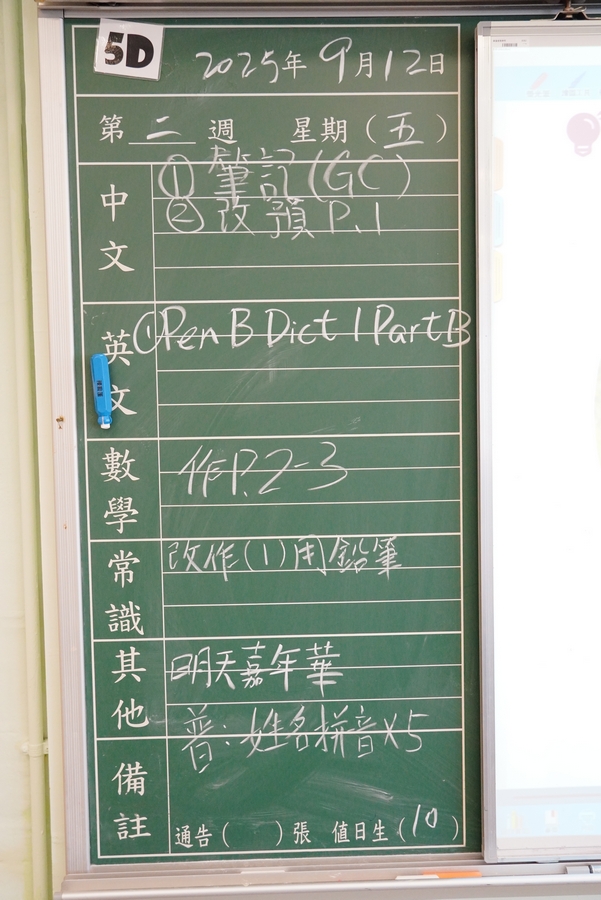 5D
2025年9月12日
第二週 星期(五)
中文
① 筆記(GC)
② 改預P.1
英文
① Pen B Dict 1 Part B
數學
作P.2-3
常識
改作(1)用鉛筆
其他
明天嘉年華
普:姓名拼音×5
備註
通告( )張 值日生(10)